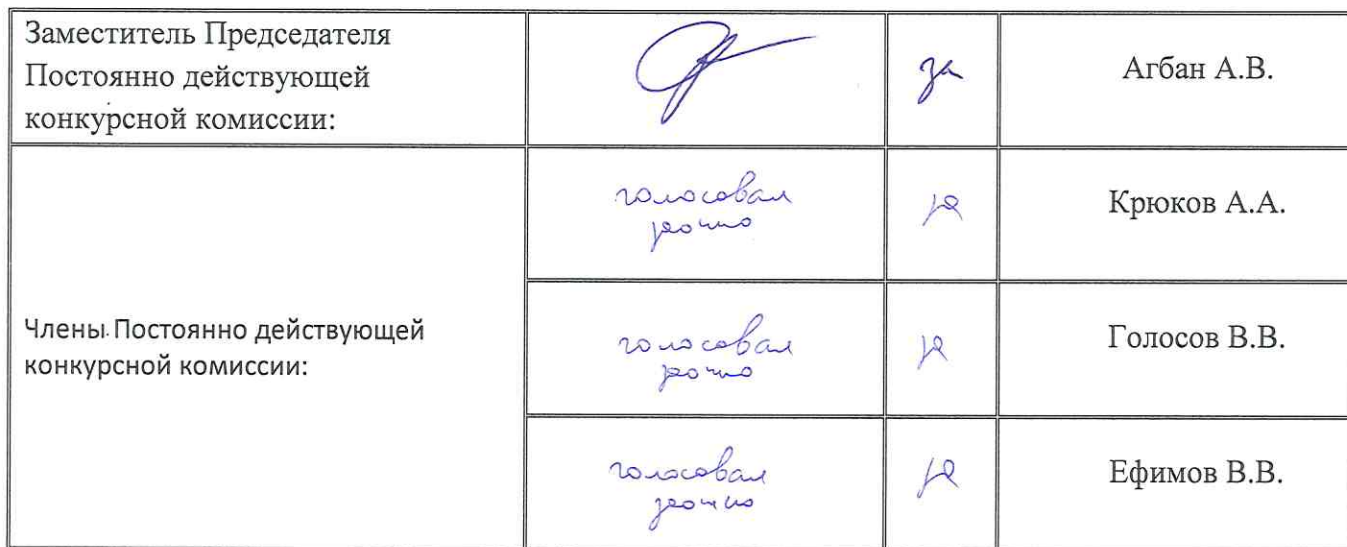 Заместитель Председателя
Постоянно действующей
конкурсной комиссии:
за
Агбан А.В.
Члены Постоянно действующей
конкурсной комиссии:
голосовал
заочно
за
Крюков А.А.
голосовал
заочно
за
Голосов В.В.
голосовал
заочно
за
Ефимов В.В.